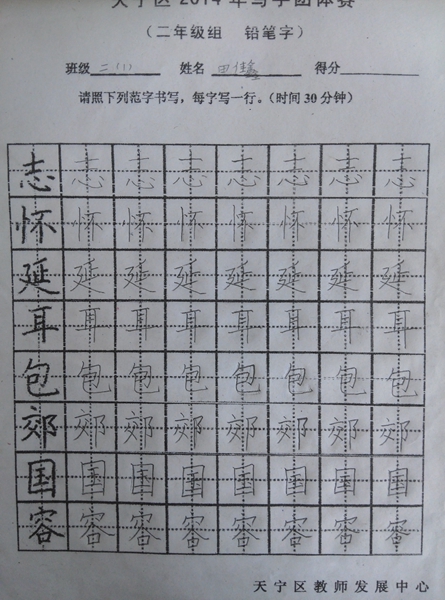 天宁区2014年写字团体赛
（二年级组 铅笔字）
班级 二（1） 姓名 田佳鑫 得分
请照下列范字书写，每字写一行。（时间30分钟）
志 志 志 志 志 志 志 志
怀 怀 怀 怀 怀 怀 怀 怀
延 延 延 延 延 延 延 延
耳 耳 耳 耳 耳 耳 耳 耳
包 包 包 包 包 包 包 包
郊 郊 郊 郊 郊 郊 郊 郊
国 国 国 国 国 国 国 国
容 容 容 容 容 容 容 容
天宁区教师发展中心